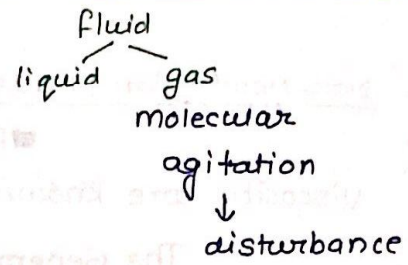 fluid
liquid gas
molecular
agitation
↓
disturbance